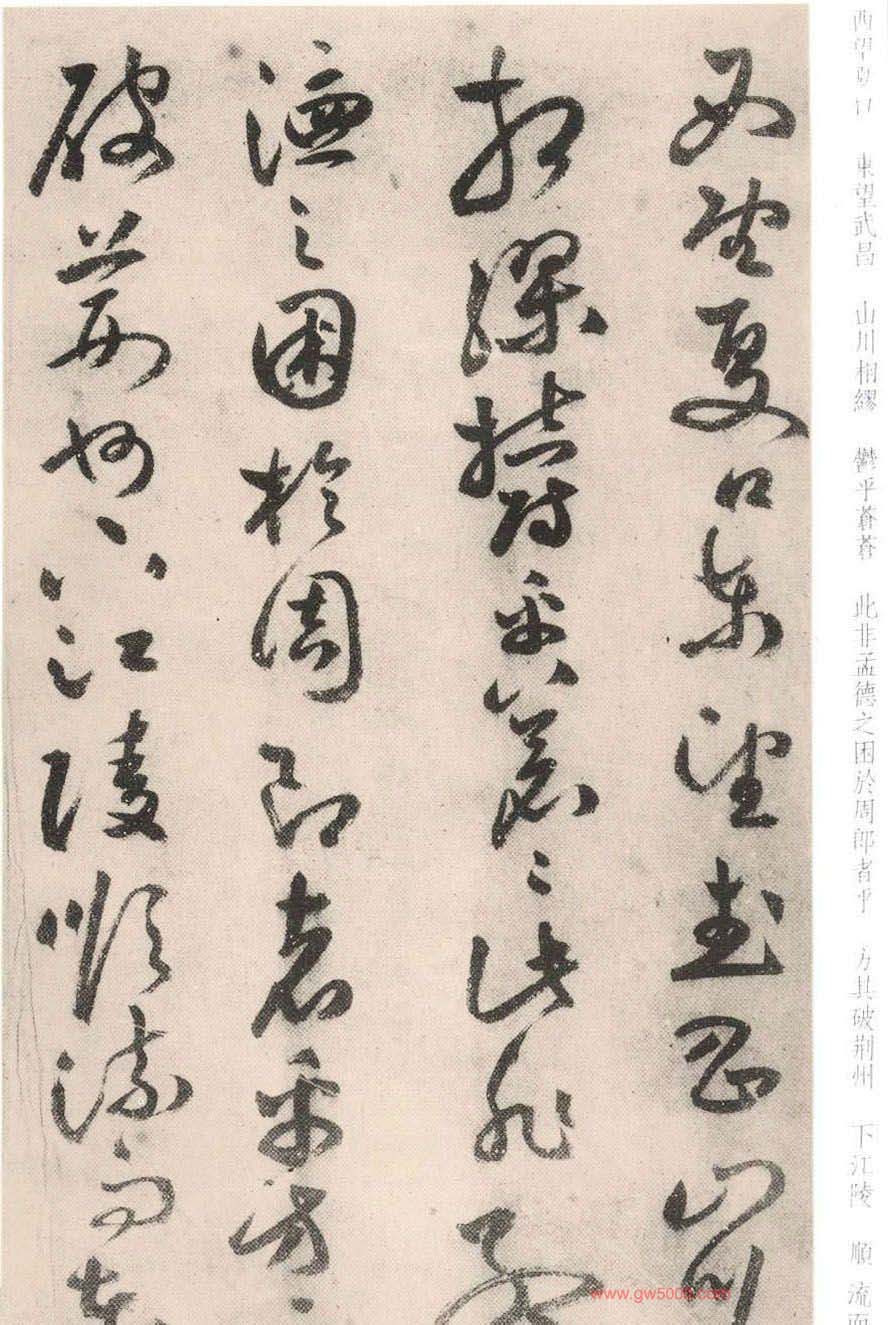 西望夏口 東望武昌 山川相繆 鬱乎蒼蒼 此非孟德之困於周郎者乎 方其破荆州 下江陵 順流而
西望夏口東望武昌山川
相繆鬱乎蒼〻此非孟
德之困於周郎者乎方
破荆州下江陵順流而東